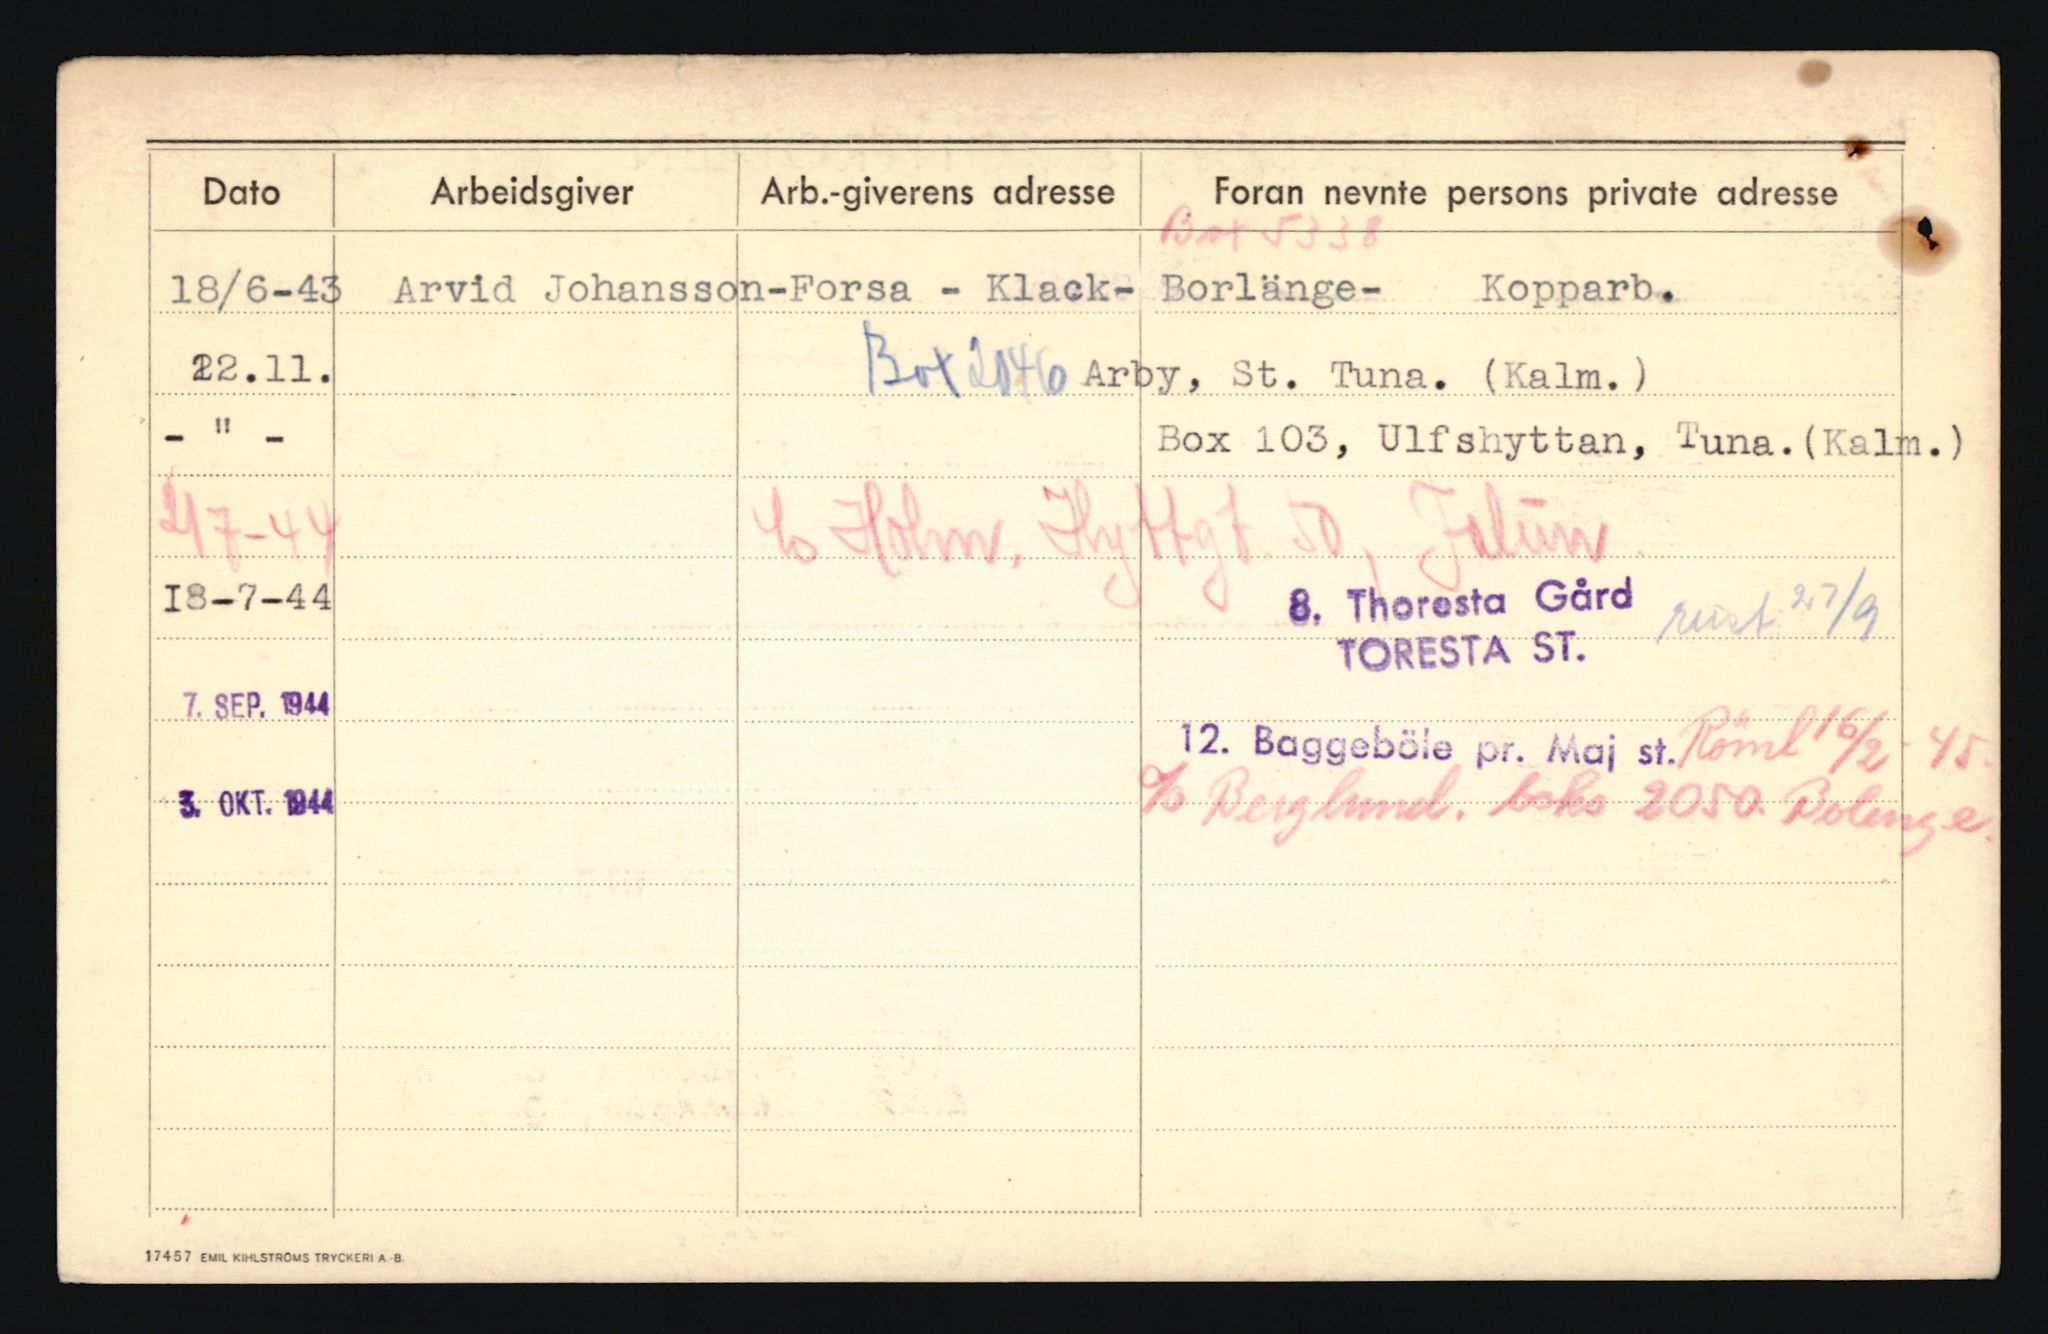 Dato Arbeidsgiver Arb.-giverens adresse Foran nevnte persons private adresse
Box 5338
18/6-43 Arvid Johansson-Forsa - Klack- Borlänge- Kopparb.
22.11. Box 2046 Arby, St. Tuna. (Kalm.)
- " - Box 103, Ulfshyttan, Tuna.(Kalm.)
21/7-44 c/o Holm, Hyttgt. 50, Falun.
18-7-44 8. Thoresta Gård
TORESTA ST. 27/9
7. SEP. 1944
12. Baggeböle pr. Maj st. Röml 16/2-45.
3. OKT. 1944 c/o Berglund. boks 2050. Bolenge.
17457 EMIL KIHLSTRÖMS TRYCKERI A.-B.